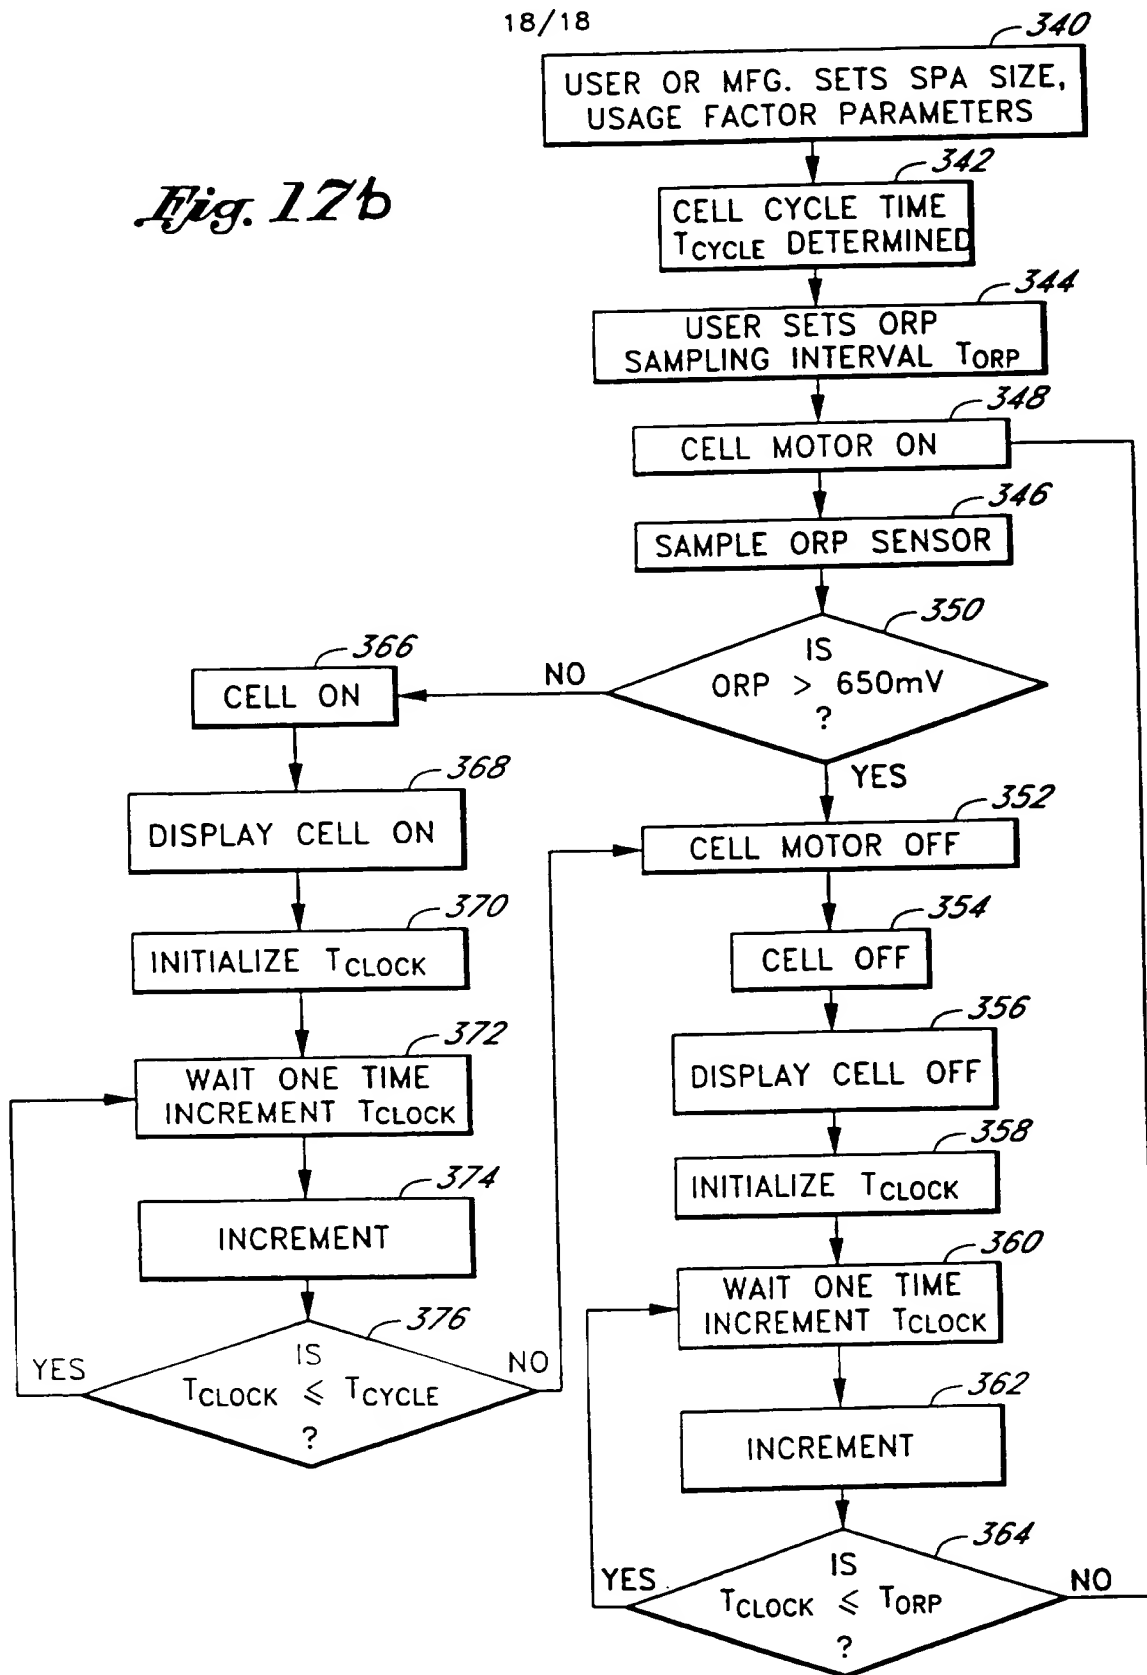 18/18
Fig. 17b
340
USER OR MFG. SETS SPA SIZE,
USAGE FACTOR PARAMETERS
342
CELL CYCLE TIME
TCYCLE DETERMINED
344
USER SETS ORP
SAMPLING INTERVAL TORP
348
CELL MOTOR ON
346
SAMPLE ORP SENSOR
350
IS
ORP > 650mV
?
NO
YES
366
CELL ON
368
DISPLAY CELL ON
370
INITIALIZE TCLOCK
372
WAIT ONE TIME
INCREMENT TCLOCK
374
INCREMENT
376
IS
TCLOCK ≤ TCYCLE
?
YES
NO
352
CELL MOTOR OFF
354
CELL OFF
356
DISPLAY CELL OFF
358
INITIALIZE TCLOCK
360
WAIT ONE TIME
INCREMENT TCLOCK
362
INCREMENT
364
IS
TCLOCK ≤ TORP
?
YES
NO